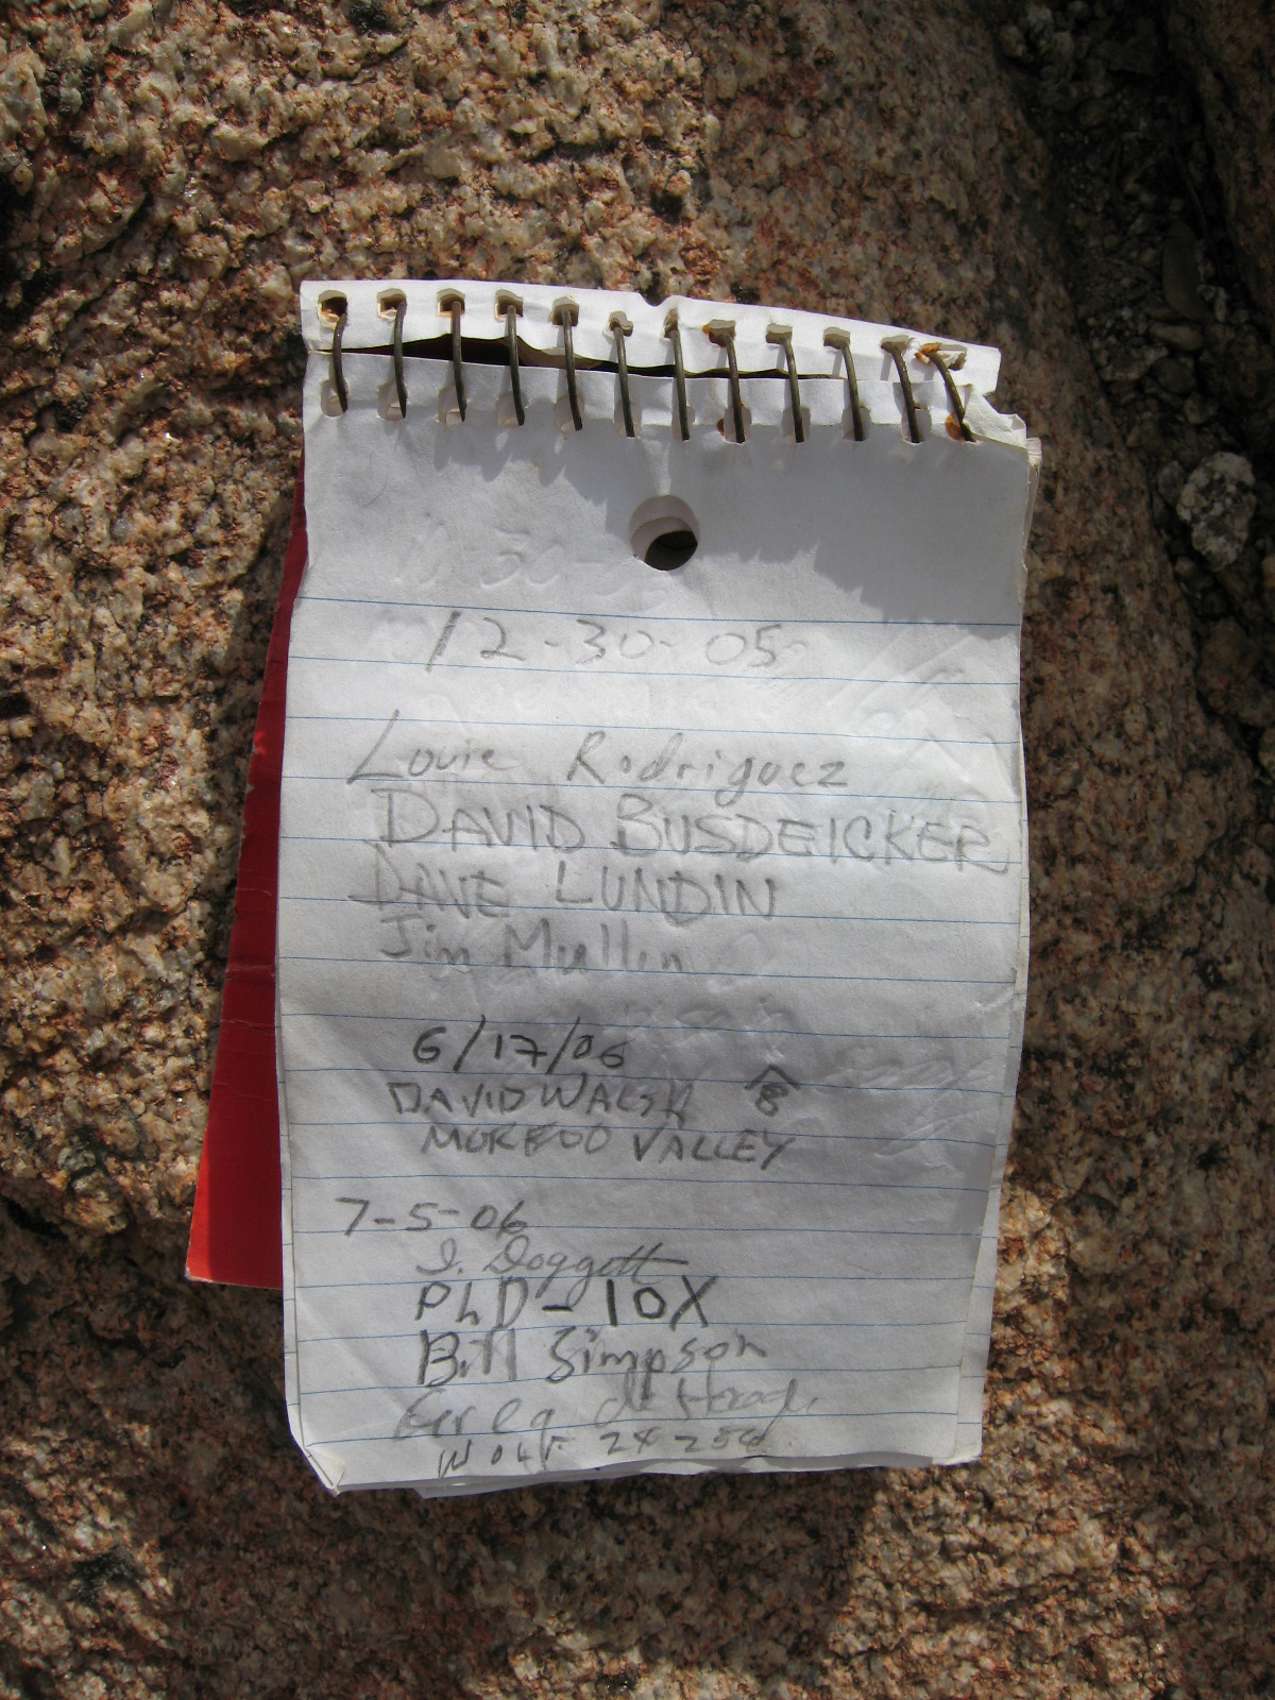 12-30-05
Louie Rodriguez
DAVID BUSDEICKER
DAVE LUNDIN
Jim Mullin
6/17/06
DAVID WALSH B
MOREUO VALLEY
7-5-06
J. Doggett
PLD-10X
Bill Simpson
Greg
WOLF 24